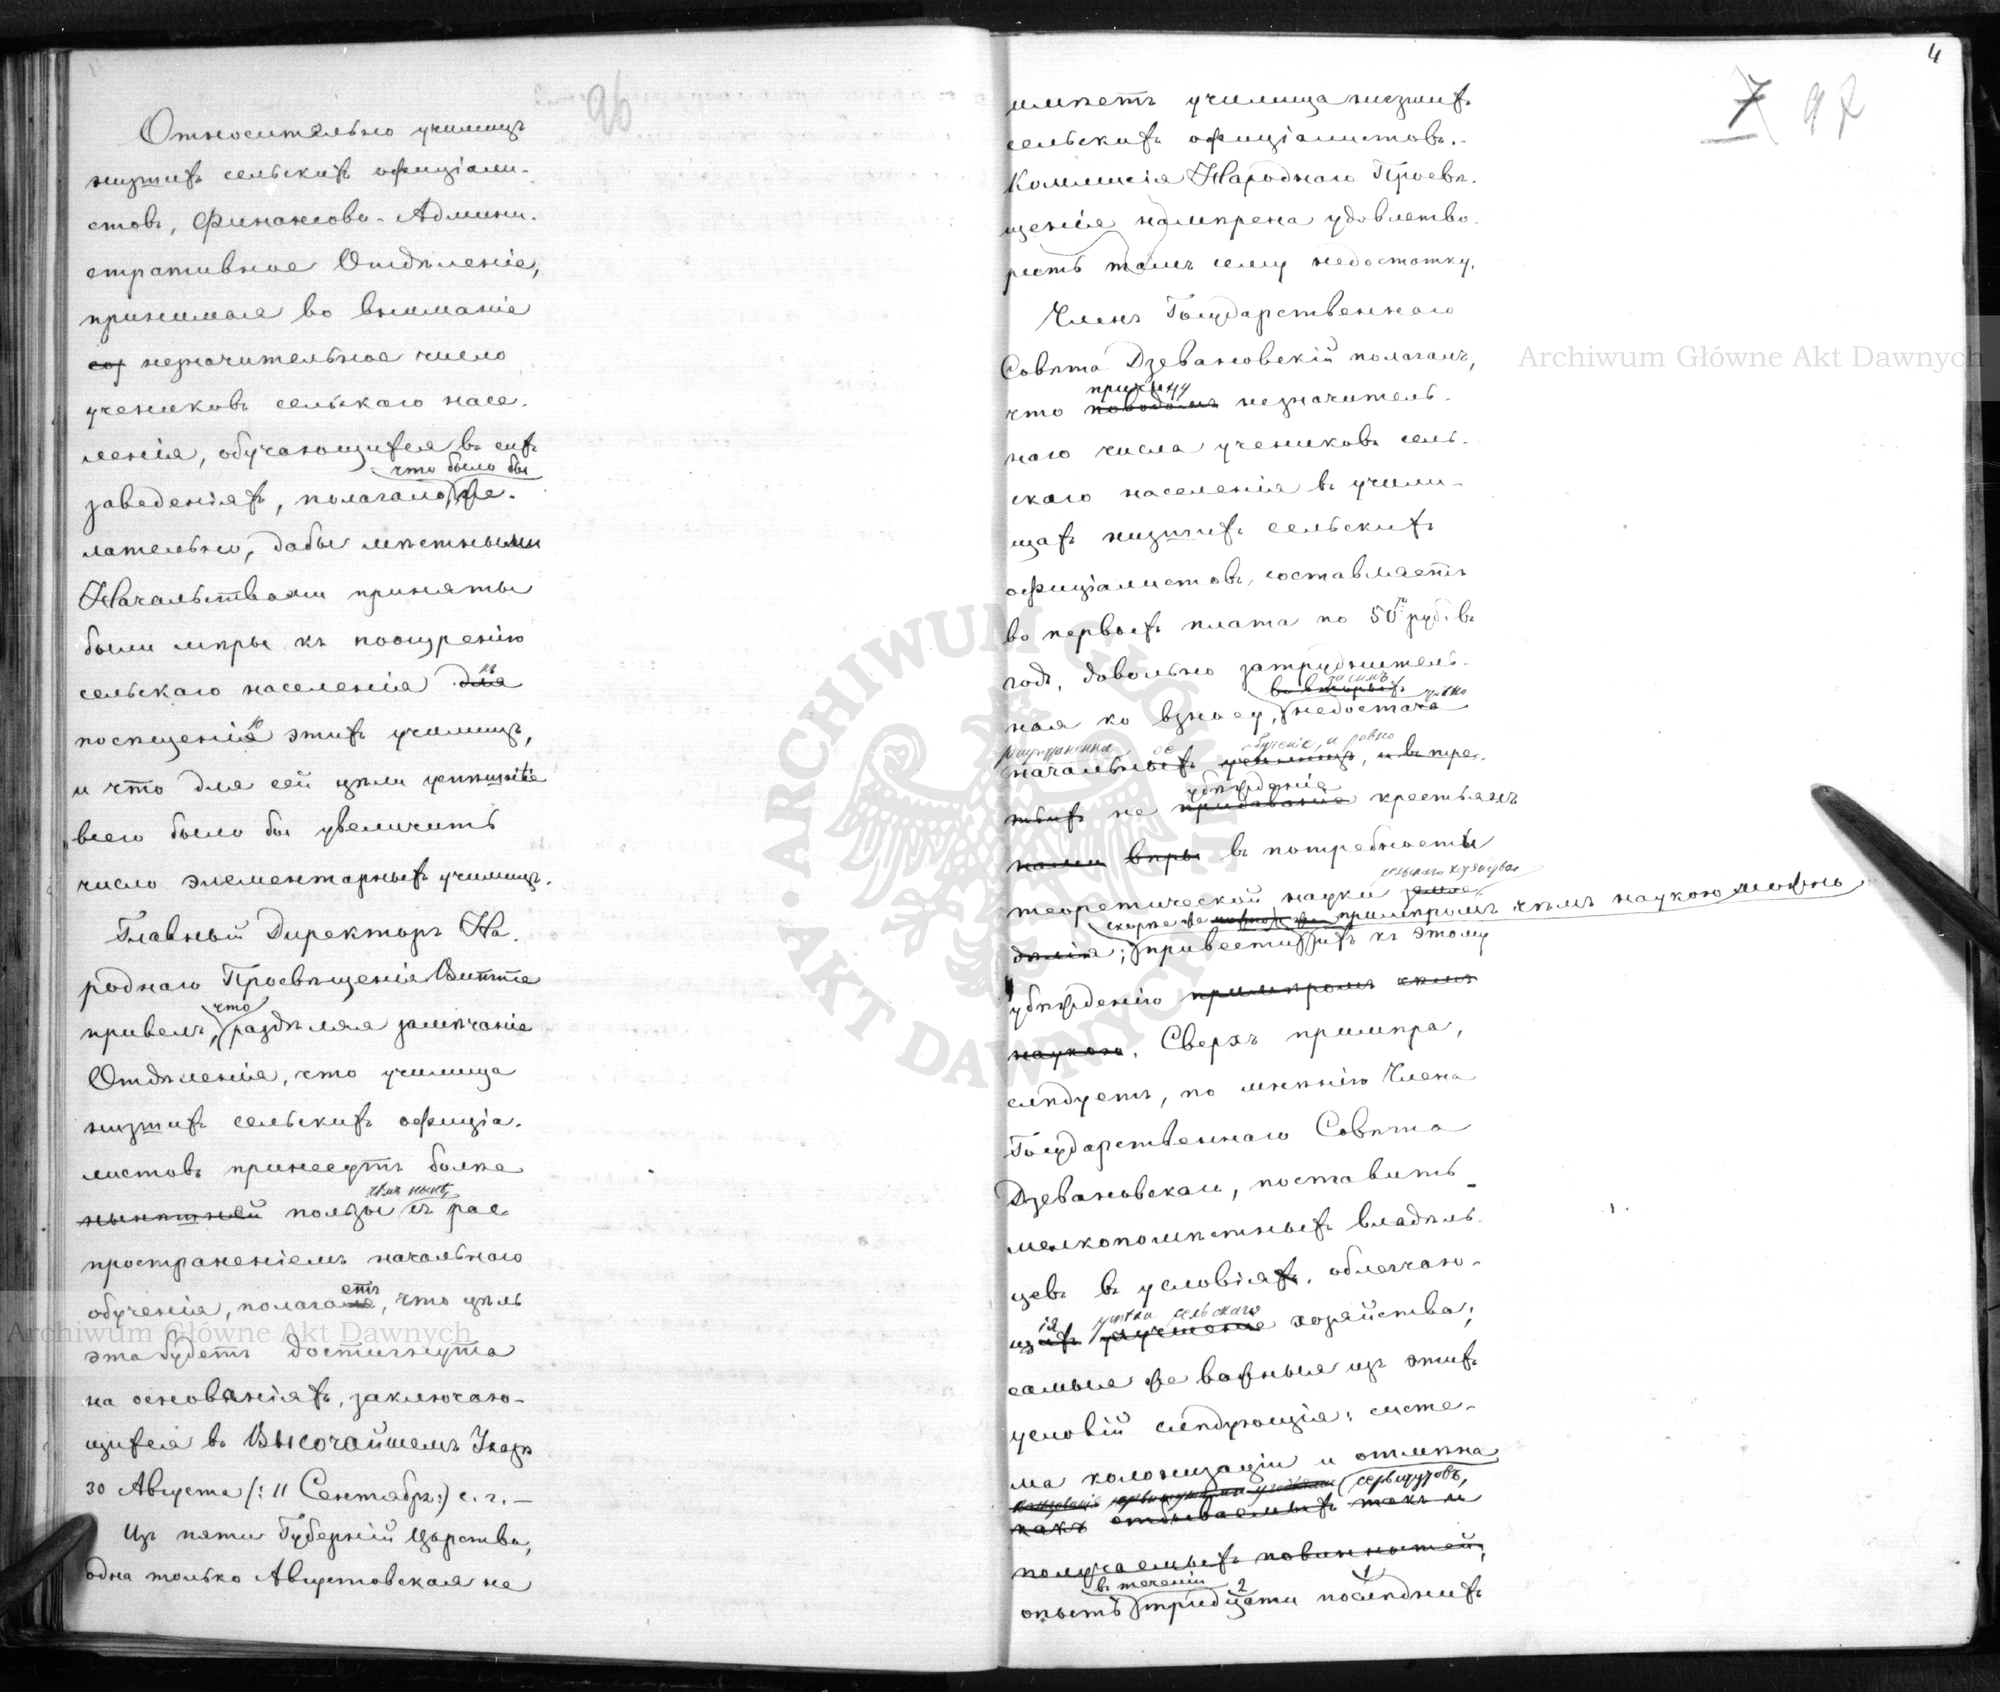 96
Относительно училищъ
низшихъ сельскихъ офиціали-
стовъ, Финансово-Админи-
стративное Отдѣленіе,
принимая во вниманіе
соз незначительное число
учениковъ сельскаго насе-
ленія, обучающихся въ сихъ
что было бы
заведеніяхъ, полагало, же-
лательно, дабы мѣстными
Начальствами приняты
были мѣры къ поощренію
сельскаго населенія для къ
посѣщенію этихъ училищъ,
и что для сей цѣли успѣшнѣе
всего было бы увеличить
число элементарныхъ училищъ.
Главный Директоръ На-
роднаго Просвѣщенія Витте
что
привелъ, раздѣляя замѣчаніе
Отдѣленія, что училища
низшихъ сельскихъ офиціа-
листовъ принесутъ болѣе
чѣмъ нынѣ
нынѣшней пользы съ рас-
пространеніемъ начальнаго
етъ
обученія, полагая, что цѣль
эта будетъ достигнута
на основаніяхъ, заключаю-
щихся въ Высочайшемъ Указѣ
30 Августа (: 11 Сентября:) с. г. —
Изъ пяти Губерній Царства,
одна только Августовская не
4
7 97
имѣетъ училища низшихъ
сельскихъ офиціалистовъ.-
Коммисія Народнаго Просвѣ-
щенія намѣрена удовлетво-
рить тамъ сему недостатку.
Членъ Государственнаго
Совѣта Дзевановскій полагалъ,
причину
что поводомъ незначитель-
наго числа учениковъ сель-
скаго населенія въ учили-
щахъ низшихъ сельскихъ
офиціалистовъ, составляетъ
во первыхъ плата по 50ти руб. въ
годъ, довольно затруднитель-
засимъ
во вторыхъ
ная ко взносу, недостача
обученіе, а равно
начальныхъ училищъ, и въ тре-
убѣжденіе
тьихъ не придаваніе крестьянъ
нами вѣры въ потребности
сельскаго хозяйства
теоретической науки земле-
скорѣе же можно примѣромъ чѣмъ наукою можно
дѣлія; привести ихъ къ этому
убѣжденію примѣромъ чѣмъ
наукою. Сверхъ примѣра,
слѣдуетъ, по мнѣнію Члена
Государственнаго Совѣта
Дзевановскаго, поставить
мелкопомѣстныхъ владѣль-
цевъ въ условія, облегчаю-
сельскаго
щія улучшеніе хозяйства;
самыя же важныя изъ этихъ
условій слѣдующія: систе-
ма колонизаціи и отмѣна
сервитутовъ,
какъ отбываемыхъ такъ и
получаемыхъ повинностей;
въ теченіи 2 1
опытъ тридцати послѣднихъ
Archiwum Główne Akt Dawnych
Archiwum Główne Akt Dawnych
ARCHIWUM GŁÓWNE AKT DAWNYCH